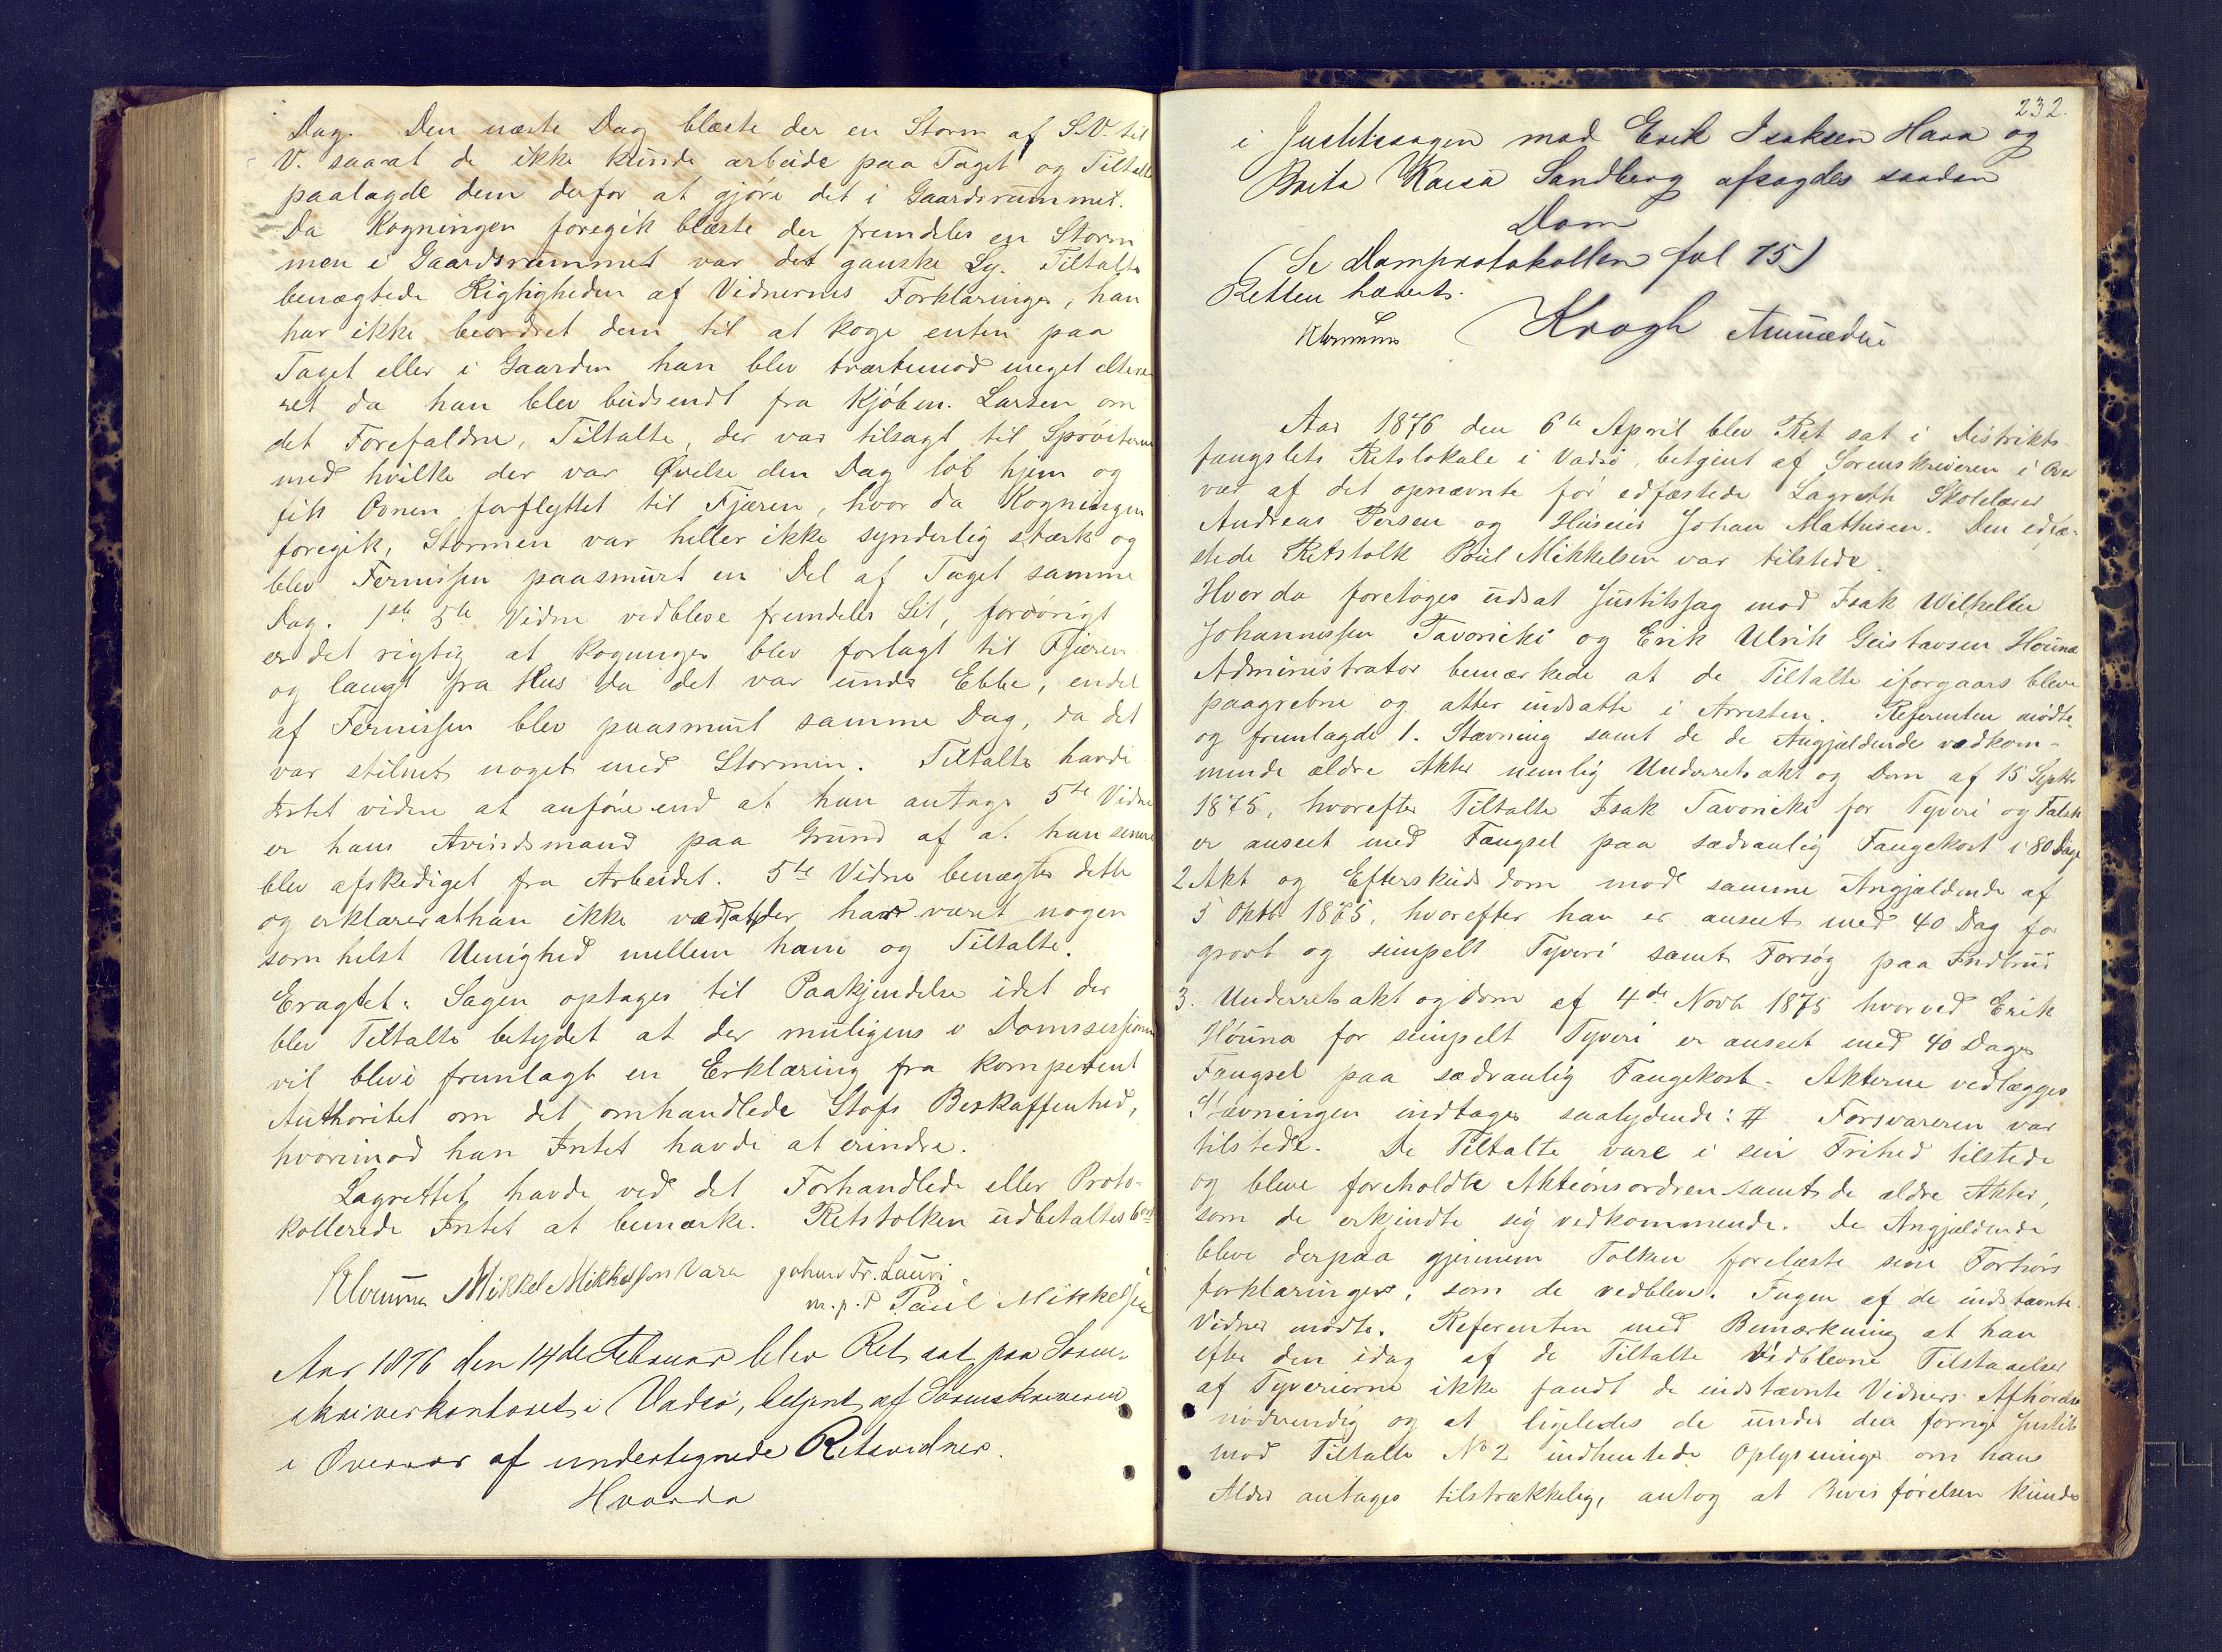 Dag. Den næste Dag blæste der en Storm af S.V. til
V. saa at de ikke kunde arbeide paa Taget og Tiltalte
paalagde dem derfor at gjøre det i Gaardsrummet.
Da Kogningen foregik blæste der fremdeles en Storm
men i Gaardsrummet var det ganske Ly. Tiltalte
benægtede Rigtigheden af Vidnernes Forklaringer, han
har ikke beordret dem til at koge enten paa
Taget eller i Gaarden han blev tvertimod meget altere
ret da han blev budsendt fra Kjøbm. Larsen om
det Forefaldne, Tiltalte, der var tilsagt til Sprøiterne
med hvilke der var Øvelse den Dag løb hjem og
fik Ovnen forflyttet til Fjæren, hvor da Kogningen
foregik, Stormen var heller ikke synderlig stærk og
blev Fernissen paasmurt en Del af Taget samme
Dag. 1ste 5te Vidne vedbleve fremdeles Sit, forøvrigt
er det rigtig at kogningen blev forlagt til Fjæren
og langt fra Hus da det var under Ebbe, endel
af Fernissen blev paasmurt samme Dag, da det
var stilnet noget med Stormen. Tiltalte havde
Intet videre at anføre end at han antager 5te Vidne
er hans Avindsmand paa Grund af at han senere
blev afskediget fra Arbeidet. 5te Vidne benægter dette
og erklærer at han ikke ved at der har været nogen
som helst Uenighed mellem ham og Tiltalte.
Eragtet: Sagen optages til Paakjendelse idet der
blev Tiltalte betydet at der muligens i Domssessionen
vil blive fremlagt en Erklæring fra kompetent
Authoritet om det omhandlede Stofs Beskaffenhed,
hvorimod han Intet havde at erindre.
Lagrettet havde ved det Forhandlede eller Proto-
kollerede Intet at bemærke. Retstolken udbetaltes
Mikkel Mikkelsen Vara Johan Fr. Lauri
m.p.P Paul Mikkelsen
Aar 1876 den 14de Februar blev Ret sat paa Soren-
skriverkontoret i Vadsø, betjent af Sorenskriveren
i Overvær af undertegnede Retsvidner.
Hvorda
232.
i Justitssagen mod Erik Isaksen Hara og
Brita Kaisa Sandberg afsagdes saadan
Dom
(Se Domprotokollen fol 75)
Retten hævet.
Krogh
Aar 1876 den 6te April blev Ret sat i Distrikts-
fængslets Retslokale i Vadsø, betjent af Sorenskriveren i Over
vær af det opnævnte før edfæstede Lagreth Skolelærer
Andreas Persen og Huseier Johan Mathisen. Den edfæ-
stede Retstolk Poul Mikkelsen var tilstede.
Hvor da foretoges udsat Justitssag mod Isak Wilhelm
Johannessen Tavoneki og Erik Ulrik Gustavsen Houna
Administrator bemærkede at de Tiltalte iforgaars bleve
paagrebne og atter indsatte i Arresten. Referenten mødte
og fremlagde 1. Stævning samt de de Angjældende vedkom-
mende ældre Akter nemlig Underretsakt og Dom af 15 Septbr
1875, hvorefter Tiltalte Isak Tavoneki for Tyveri og Falsk
er anseet med Fængsel paa sædvanlig Fangekost i 80 Dage
2 Akt og Efterskudsdom mod samme Angjældende af
5 Oktb 1875, hvorefter han er anseet med 40 Dag for
grovt og simpelt Tyveri samt Forsøg paa Indbrud
3. Underretsakt og dom af 4de Novb 1875 hvorved Erik
Houna for simpelt Tyveri er anseet med 40 Dages
Fængsel paa sædvanlig Fangekost. Akterne vedlægges
Stævningen indtages saalydende: # Forsvareren var
tilstede. De Tiltalte vare i sin Frihed tilstede
og bleve foreholdte Aktionsordren samt de ældre Akter,
som de erkjendte sig vedkommende. De Angjældende
bleve derpaa gjennem Tolken forelæste sine Forhørs
forklaringer, som de vedbleve. Ingen af de indstævnte
Vidner mødte. Referenten med Bemærkning at han
efter den idag af de Tiltalte vedblevne Tilstaaelser
af Tyverierne ikke fandt de indstævnte Vidners Afhørelse
nødvendig og at ligeledes de under den forrige Justits
mod Tiltalte No 2 indhentede Oplysninger om hans
Alder antages tilstrækkelig, antog at Bevisførelsen kunde